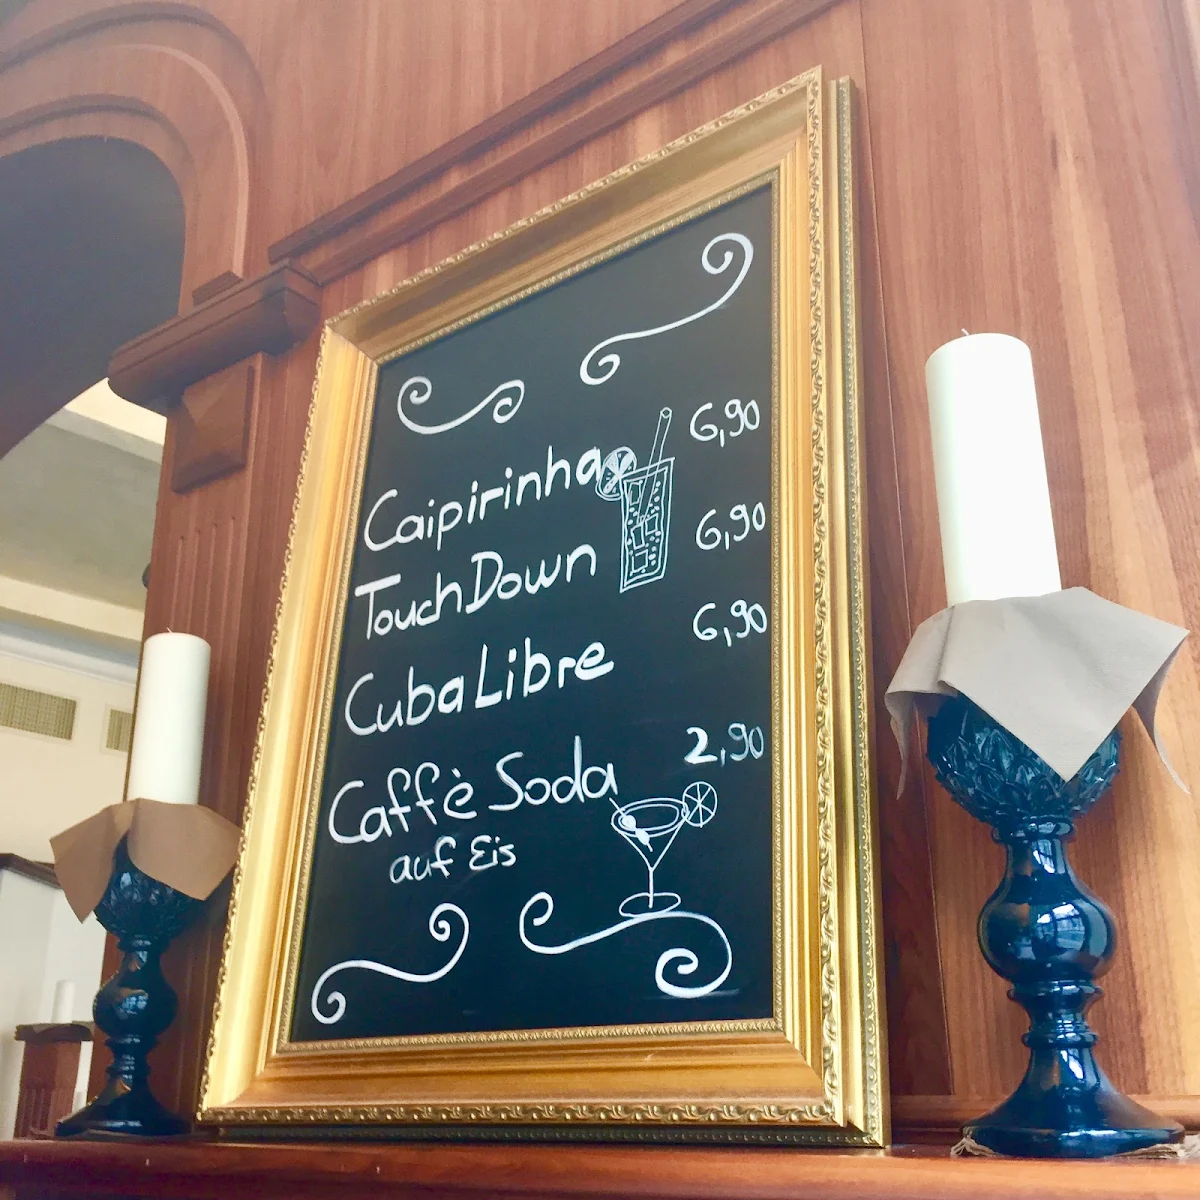 Caipirinha 6,90
TouchDown 6,90
Cuba Libre 6,90
Caffè Soda 2,90
auf Eis